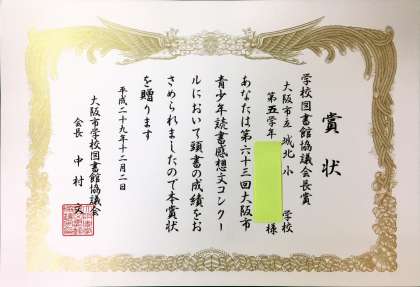 賞状
学校図書館協議会長賞
大阪市立 城北小 学校
第五学年 様
あなたは第六十三回大阪市
青少年読書感想文コンクー
ルにおいて頭書の成績をお
さめられましたので本賞状
を贈ります
平成二十九年十二月二日
大阪市学校図書館協議会
会長 中村 文